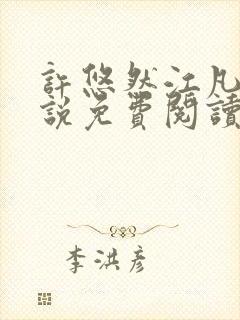 許悠然江凡
說免費閱讀
李洪彥